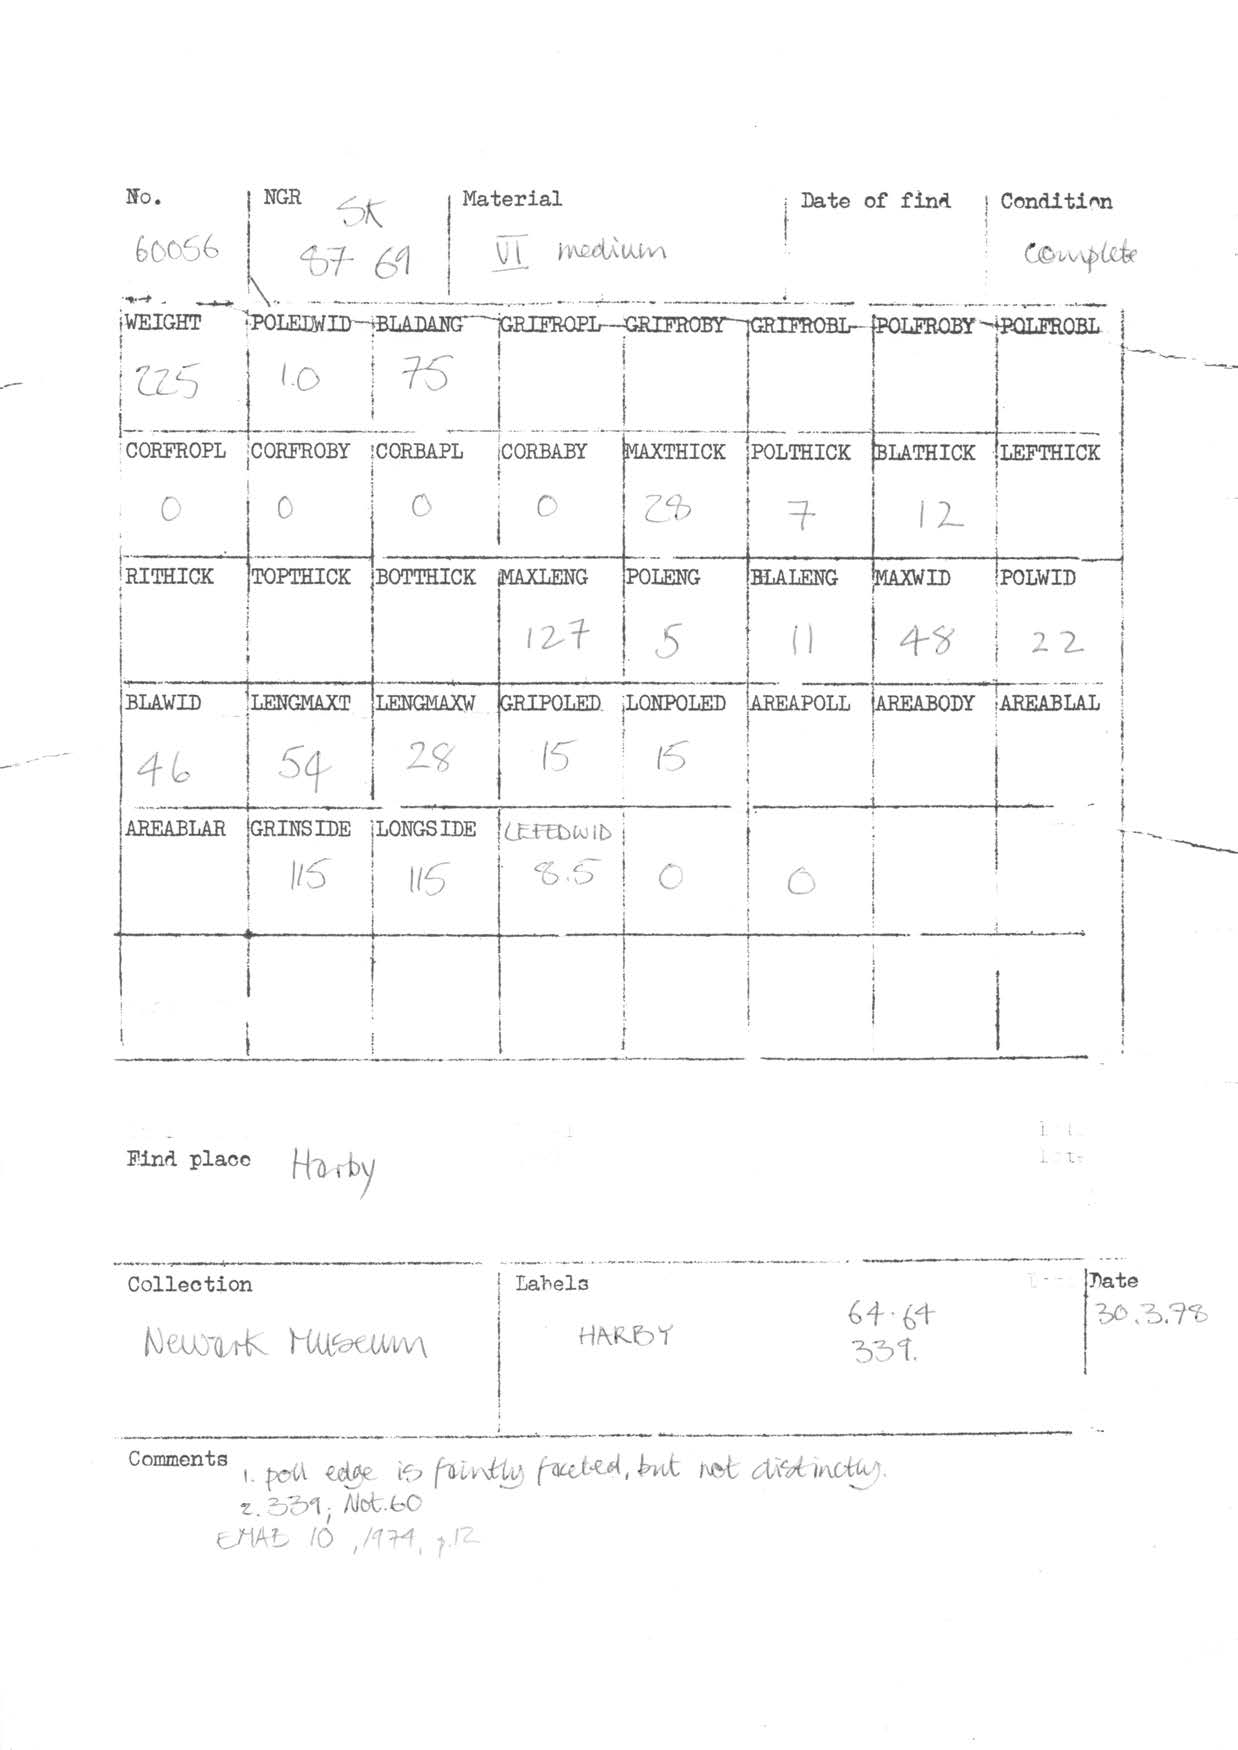 No. NGR Material Date of find Condition
SK
60056 87 69 VI medium complete
WEIGHT POLEDWID BLADANG GRIFROPL GRIFROBY GRIFROBL POLFROBY POLFROBL
225 1.0 75
CORFROPL CORFROBY CORBAPL CORBABY MAXTHICK POLTHICK BLATHICK LEFTHICK
0 0 0 0 28 7 12
RITHICK TOPTHICK BOTTHICK MAXLENG POLENG BLALENG MAXWID POLWID
127 5 11 48 22
BLAWID LENGMAXT LENGMAXW GRIPOLED LONPOLED AREAPOLL AREABODY AREABLAL
46 54 28 15 15
AREABLAR GRINSIDE LONGSIDE LEFEDWID
115 115 8.5 0 0
Find place Harby
Collection Labels Date
Newark Museum HARBY 64.64 30.3.78
339.
Comments 1. poll edge is faintly faceted, but not distinctly.
2. 339; Not.60
EMAB 10, 1974, p.12